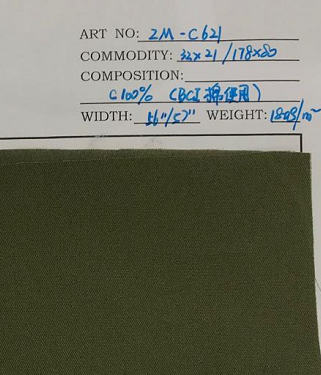 ART NO: ZM-C621
COMMODITY: 32×21/178×80
COMPOSITION:
C100% (BCI 棉使用)
WIDTH: 56"/57" WEIGHT: